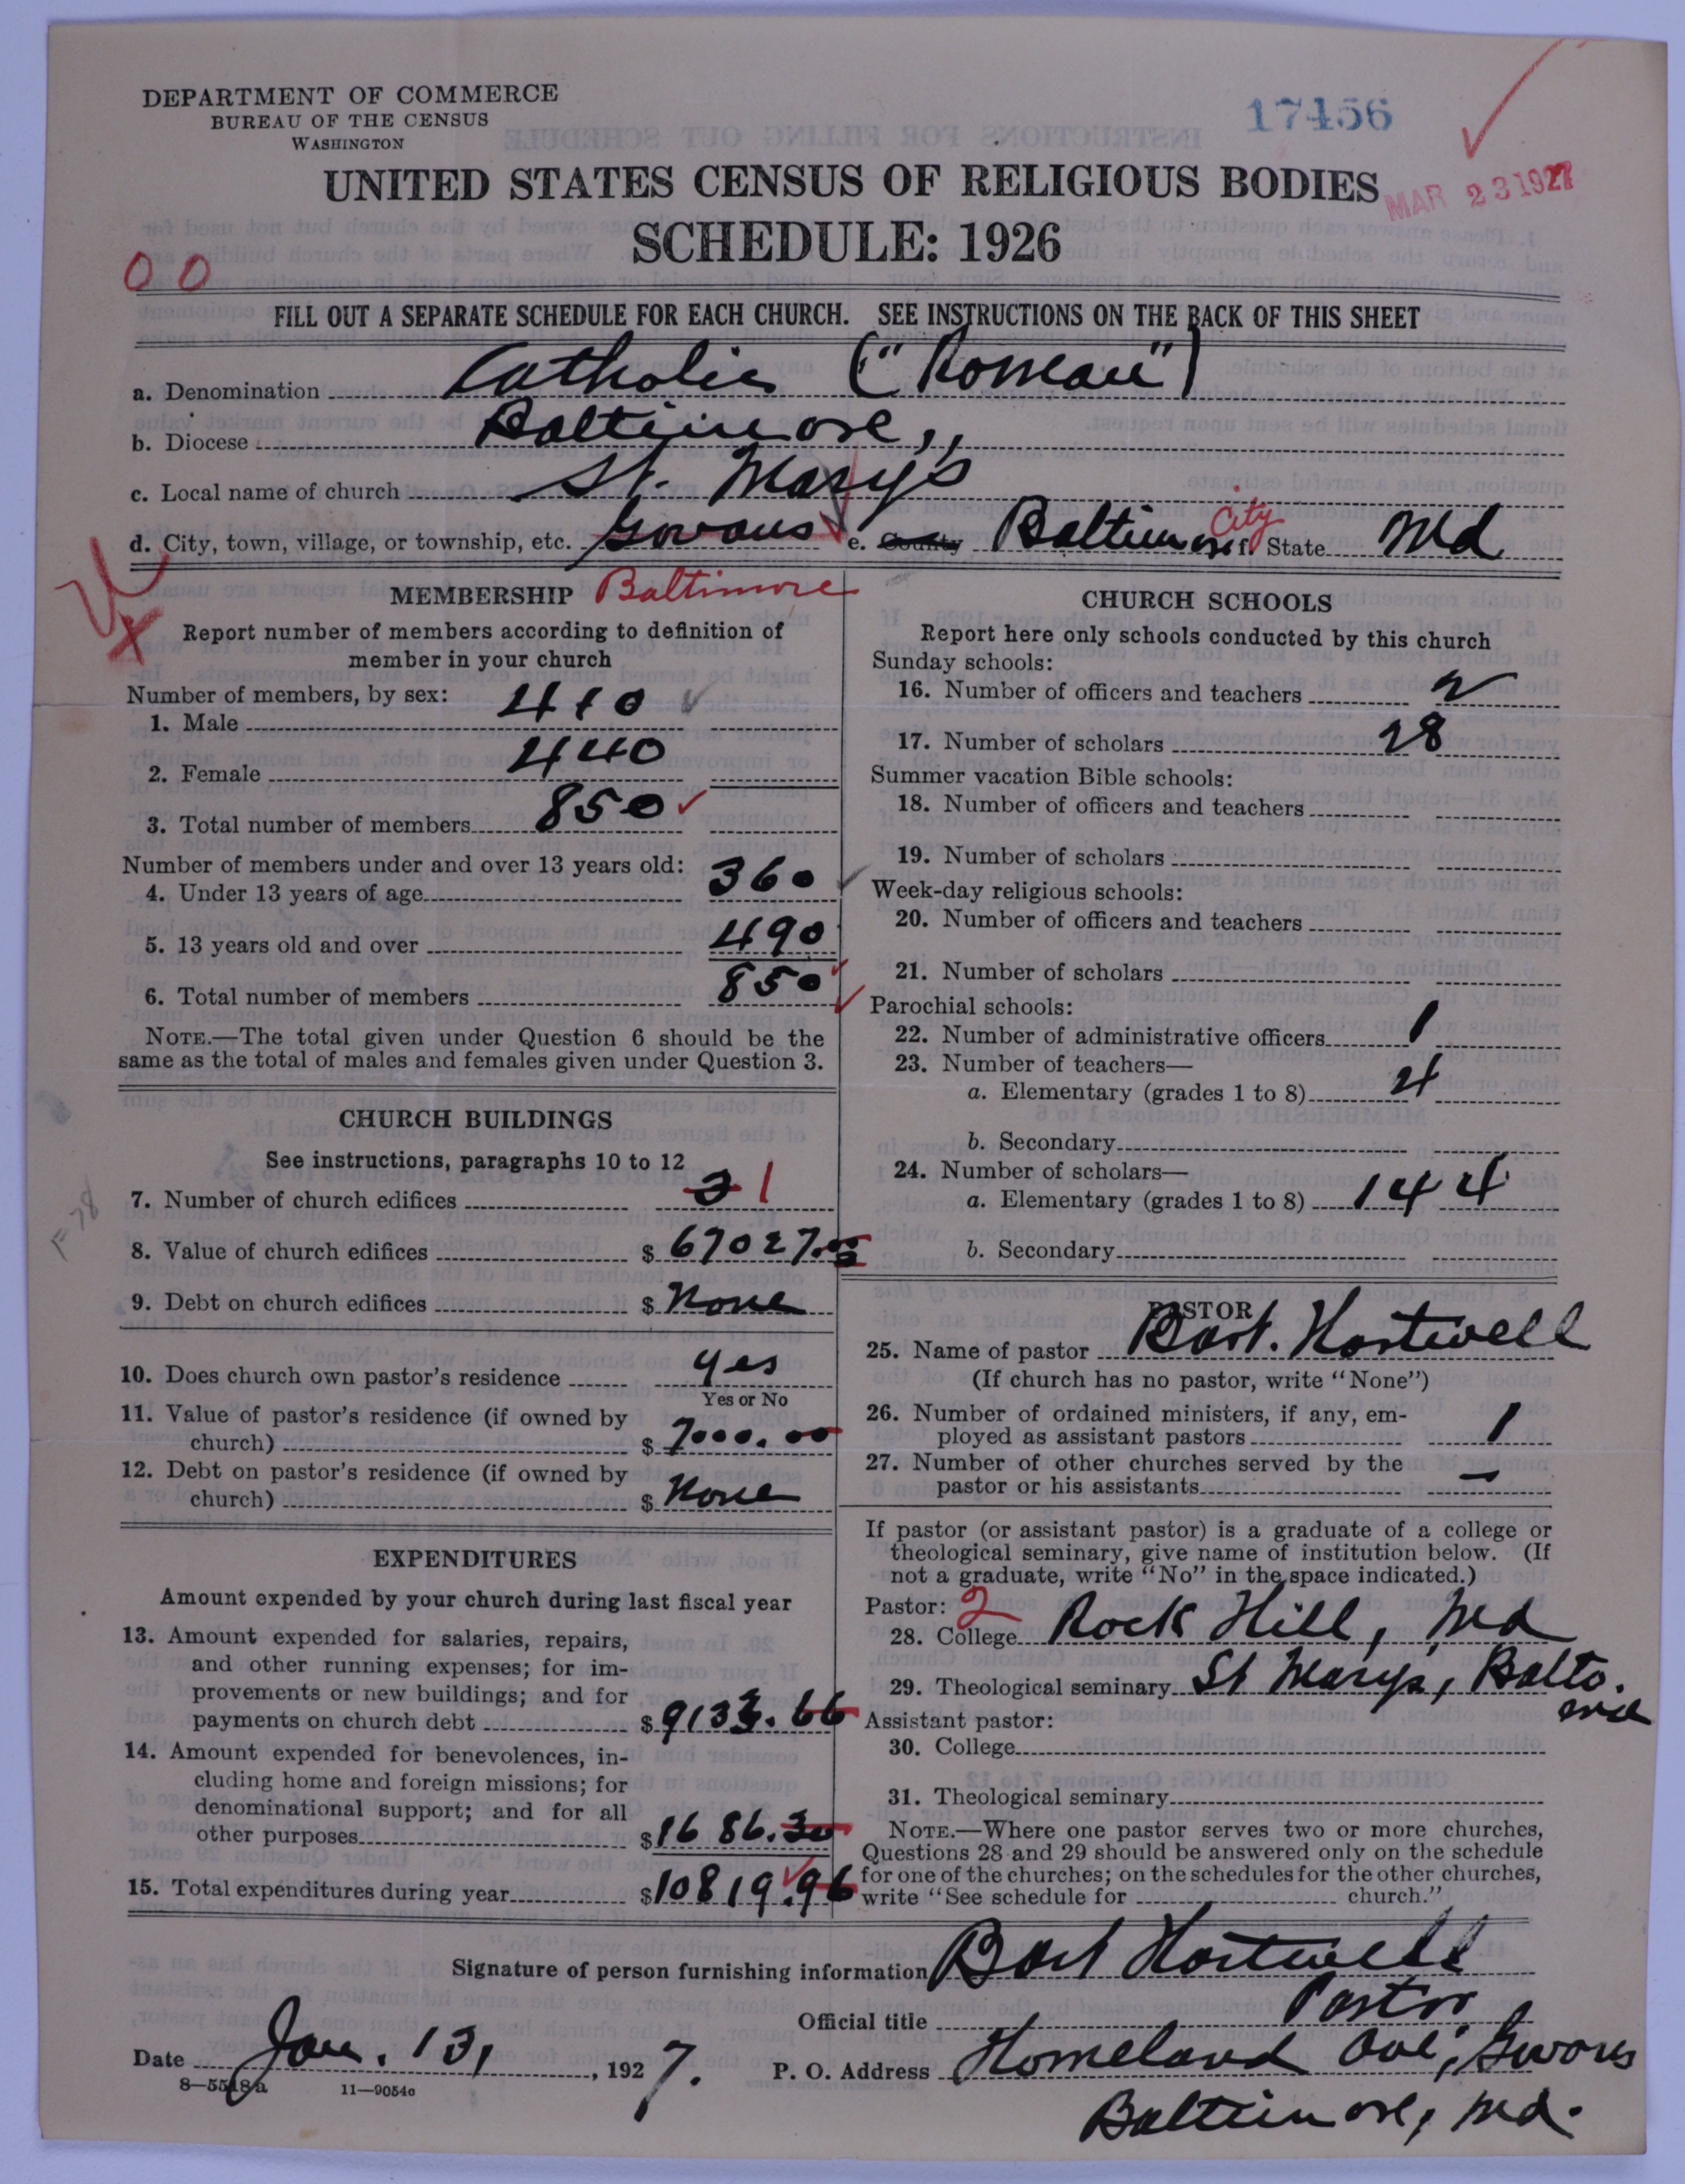 DEPARTMENT OF COMMERCE
BUREAU OF THE CENSUS
WASHINGTON
17456
UNITED STATES CENSUS OF RELIGIOUS BODIES
MAR 23 1927
SCHEDULE: 1926
00
FILL OUT A SEPARATE SCHEDULE FOR EACH CHURCH. SEE INSTRUCTIONS ON THE BACK OF THIS SHEET
a. Denomination Catholic ("Roman")
b. Diocese Baltimore,
c. Local name of church St. Marys
d. City, town, village, or township, etc. Govans e. County Baltimore City f. State Md
Baltimore
MEMBERSHIP
Report number of members according to definition of
member in your church
Number of members, by sex:
1. Male 410
2. Female 440
3. Total number of members 850
Number of members under and over 13 years old:
4. Under 13 years of age 360
5. 13 years old and over 490
6. Total number of members 850
NOTE.—The total given under Question 6 should be the
same as the total of males and females given under Question 3.
CHURCH BUILDINGS
See instructions, paragraphs 10 to 12
7. Number of church edifices 1
8. Value of church edifices $ 67027.00
9. Debt on church edifices $ None
10. Does church own pastor's residence yes
Yes or No
11. Value of pastor's residence (if owned by
church) $ 7000.00
12. Debt on pastor's residence (if owned by
church) $ None
EXPENDITURES
Amount expended by your church during last fiscal year
13. Amount expended for salaries, repairs,
and other running expenses; for im-
provements or new buildings; and for
payments on church debt $ 9133.66
14. Amount expended for benevolences, in-
cluding home and foreign missions; for
denominational support; and for all
other purposes $ 1686.30
15. Total expenditures during year $ 10819.96
CHURCH SCHOOLS
Report here only schools conducted by this church
Sunday schools:
16. Number of officers and teachers 2
17. Number of scholars 28
Summer vacation Bible schools:
18. Number of officers and teachers
19. Number of scholars
Week-day religious schools:
20. Number of officers and teachers
21. Number of scholars
Parochial schools:
22. Number of administrative officers 1
23. Number of teachers—
a. Elementary (grades 1 to 8) 4
b. Secondary
24. Number of scholars—
a. Elementary (grades 1 to 8) 144
b. Secondary
PASTOR
25. Name of pastor Bart. Hartwell
(If church has no pastor, write "None")
26. Number of ordained ministers, if any, em-
ployed as assistant pastors 1
27. Number of other churches served by the
pastor or his assistants —
If pastor (or assistant pastor) is a graduate of a college or
theological seminary, give name of institution below. (If
not a graduate, write "No" in the space indicated.)
Pastor: 2
28. College Rock Hill, Md
29. Theological seminary St Marys, Balto.
Md
Assistant pastor:
30. College
31. Theological seminary
NOTE.—Where one pastor serves two or more churches,
Questions 28 and 29 should be answered only on the schedule
for one of the churches; on the schedules for the other churches,
write "See schedule for church."
Signature of person furnishing information Bart Hartwell
Official title Pastor
Date Jan. 13, 1927. P. O. Address Homeland Ave, Govans
8—5518a 11—9054a
Baltimore, Md.